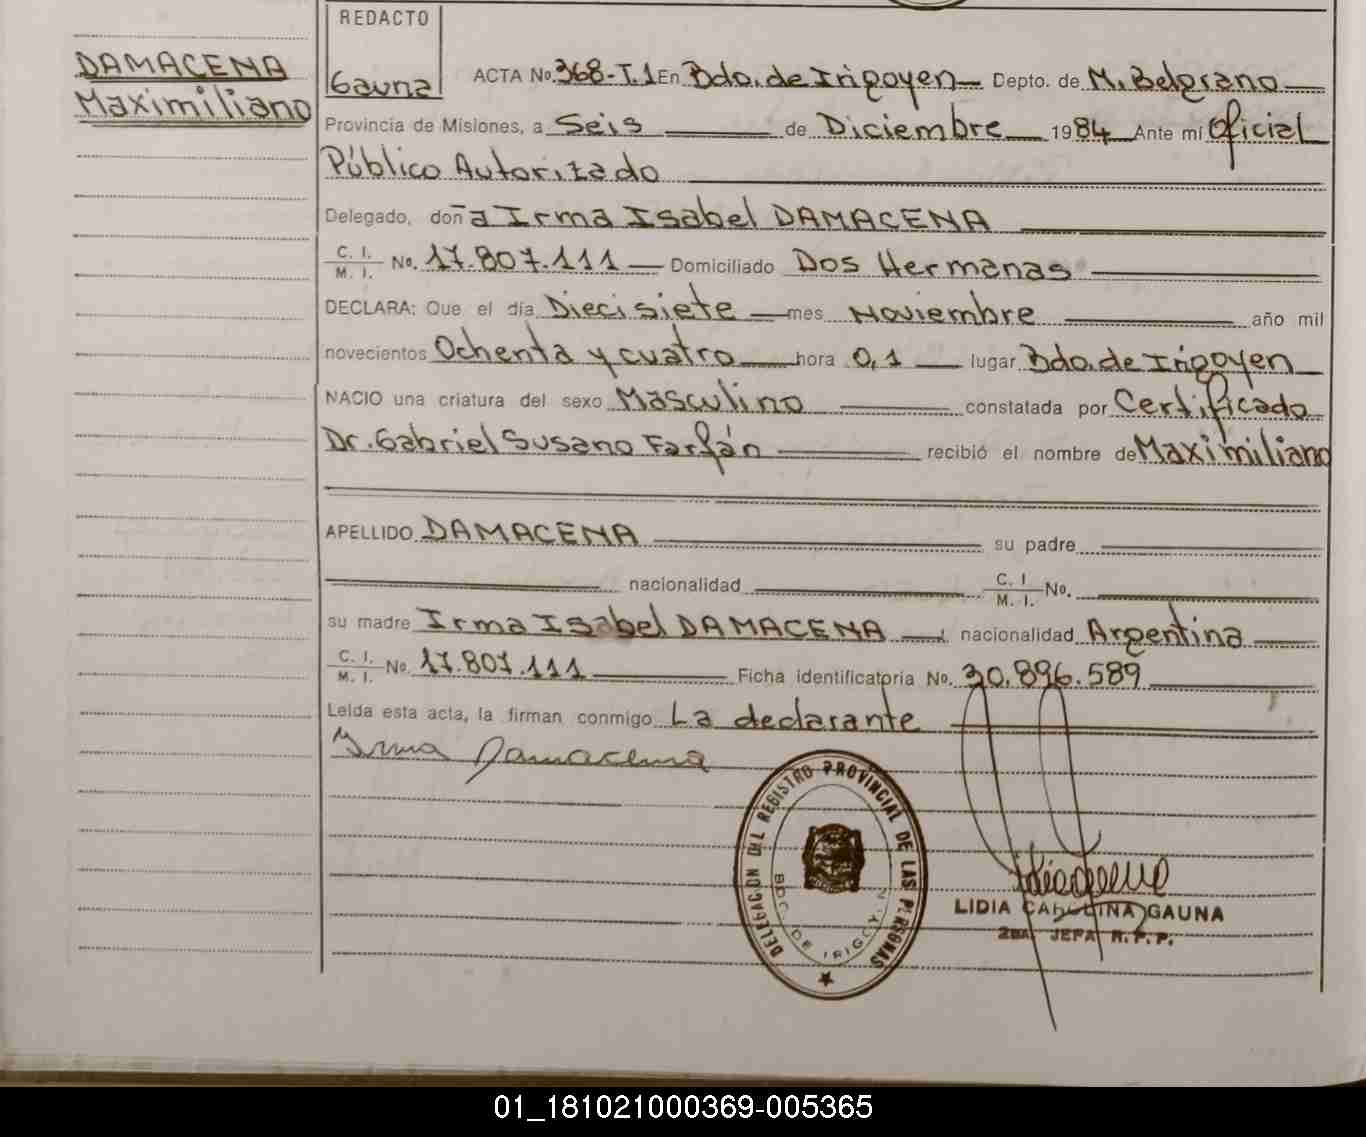 REDACTO
DAMACENA
Maximiliano
Gauna
ACTA No. 368-T.1 En Bdo. de Irigoyen Depto. de M. Belgrano
Provincia de Misiones, a Seis de Diciembre 1984 Ante mí Oficial
Público Autorizado
Delegado, doña Irma Isabel DAMACENA
C. I. / M. I. No. 17.807.111 Domiciliado Dos Hermanas
DECLARA: Que el día Diecisiete mes Noviembre año mil
novecientos Ochenta y cuatro hora 0,1 lugar Bdo. de Irigoyen
NACIO una criatura del sexo Masculino constatada por Certificado
Dr. Gabriel Susano Farfán recibió el nombre de Maximiliano
APELLIDO DAMACENA su padre
nacionalidad C. I / M. I. No.
su madre Irma Isabel DAMACENA nacionalidad Argentina
C. I. / M. I. No. 17.807.111 Ficha identificatoria No. 30.896.589
Leida esta acta, la firman conmigo La declarante
Irma Damacena
DELEGACION DEL REGISTRO PROVINCIAL DE LAS PERSONAS
BDO. DE IRIGOYEN
LIDIA CAROLINA GAUNA
2DA JEFA R. P. P.
01_181021000369-005365